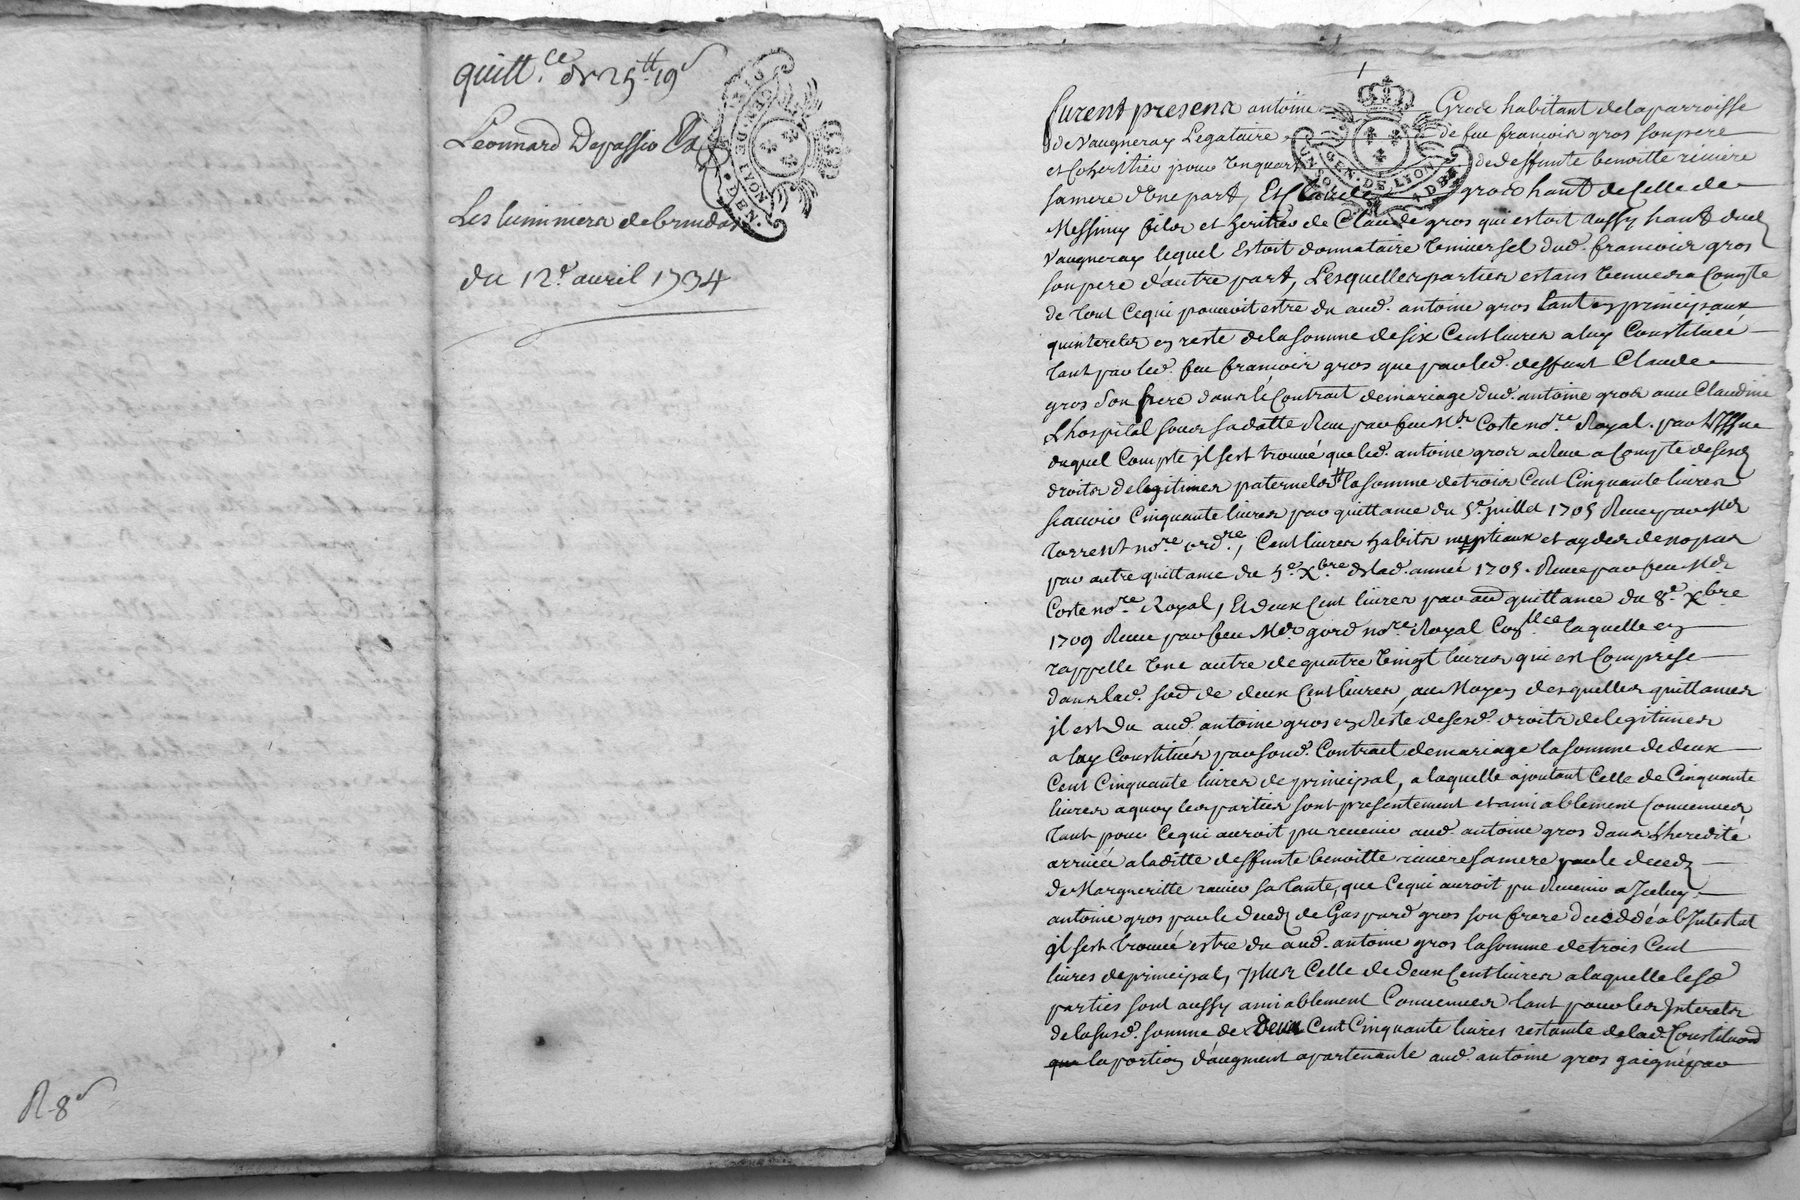 quitt.ce de 25tt 19s
Léonnard Depassio
Les luminiers de brindas
du 12e avril 1734
R 8s
GEN. DE LYON
DEN.
furent presens antoine Gros habitant de la parroisse
de Vaugneray Legataire de feu francois gros son pere
et Cohertier pour un quart de deffunte benoitte riviere
sa mere d'une part, Et Claude gros hant de Celle de
Messimy fils et heritier de Claude gros qui estoit aussy hant dud
Vaugneray lequel Estoit donnataire universel dud. francois gros
son pere d'autre part, Lesquelles parties estans venues a Compte
de tout Ce qui pouvoit estre du aud. antoine gros tant en principaux
qu'interests en reste de la somme de six Cent livres a luy Constituée
tant par led. feu francois gros que par led. deffunt Claude
gros son frere dans le Contrait de mariage dud. antoine gros avec Claudine
Lhospital sous sa datte Receu par feu Mr. Coste no.re Royal. par
duquel Compte il s'est trouvé que led. antoine gros a Receu a Compte de sesd
droits de legitimes paternels la somme de trois Cent Cinquante livres
scavoir Cinquante livres par quittance du 5e. juillet 1705 Receue par Mr
torrent no.re ord.re, Cent livres habits nuptiaux et aydes de nopces
par autre quittance du 5e. Xbre de lad. année 1705. Receue par feu Mr
Coste no.re Royal, Et deux Cent livres par au quittance du 8e. Xbre
1709 Receue par feu Mr. gord no.re Royal laquelle en
rappelle Une autre de quatre Vingt livres qui est Comprise
dans lad. sud de deux Cent livres, au Moyen desquelles quittances
il est Du aud. antoine gros en Reste de sesd. droits de legitimes
a luy Constitués par sond. Contrait de mariage la somme de deux
Cent Cinquante livres de principal, a laquelle ajoutant Celle de Cinquante
livres a quoy les parties sont presentement et amiablement Convenues
tant pour Ce qui auroit pu revenir aud. antoine gros dans Lheredité
arrivée a laditte deffunte benoitte riviere sa mere par le deced
de Margueritte sa tante, que Ce qui auroit pu Revenir a Iceluy
antoine gros par le deced de Gaspard gros son frere decedé ab Intestat
il s'est trouvé estre du aud. antoine gros la somme de trois Cent
livres de principal, plus Celle de deux Cent livres a laquelle lesd
parties sont aussy amiablement Convenues tant pour les Interets
de la susd. somme de Deux Cent Cinquante livres restante de lad. Constituon
que la portion d'augment apartenante aud. antoine gros gaigné par